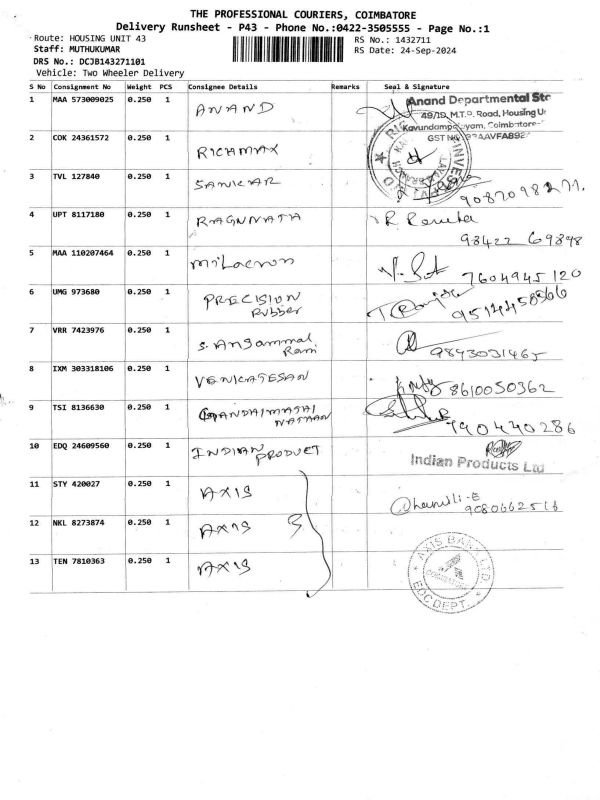 THE PROFESSIONAL COURIERS, COIMBATORE
Delivery Runsheet - P43 - Phone No.:0422-3505555 - Page No.:1
Route: HOUSING UNIT 43
RS No.: 1432711
Staff: MUTHUKUMAR
RS Date: 24-Sep-2024
DRS No.: DCJB143271101
Vehicle: Two Wheeler Delivery
S No Consignment No Weight PCS Consignee Details Remarks Seal & Signature
1 MAA 573009025 0.250 1 ANAND
Anand Departmental Str
49/1D, M.T.P. Road, Housing U
Kavundampalayam, Coimbatore-
2 COK 24361572 0.250 1 RICHMAX
3 TVL 127840 0.250 1 SANKAR
9087098271.
4 UPT 8117180 0.250 1 RAGUNATH R
93422 69898
5 MAA 110207464 0.250 1 Milacron
7604945120
6 UMG 973680 0.250 1 PRECISION
Rubber
7 VRR 7423976 0.250 1 S. Angammal
Rani
9843031465
8 IXM 303318106 0.250 1 VENKATESAN 8610050362
9 TSI 8136630 0.250 1
NATHAN
790440286
10 EDQ 24609560 0.250 1 INDIAN
PRODUCT
Indian Products Ltd
11 STY 420027 0.250 1 AXIS
9080662516
12 NKL 8273874 0.250 1 AXIS 3
13 TEN 7810363 0.250 1 AXIS
AXIS BANK LTD.
COIMBATORE
EDC DEPT.